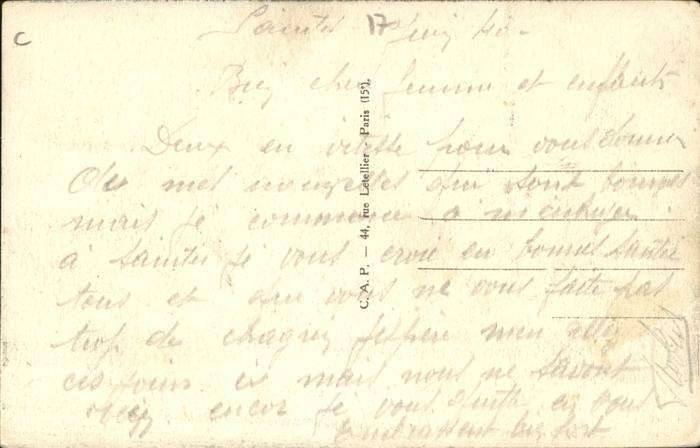 C
Saintes 17 Juin 40 -
Bien cher femme et enfants
Deux en vitesse pour vous donner
De mes nouvelles qui sont bonnes
mais je commence a m'ennuyer
à Saintes je vous croie en bonnes santé
tous et que vous ne vous faite pas
trop de chagrin j'espère
ces jours ci mais nous ne savont
encor je vous quitte en vous
embrassent bien fort
C. A. P. — 44, rue Letellier, Paris (15e).